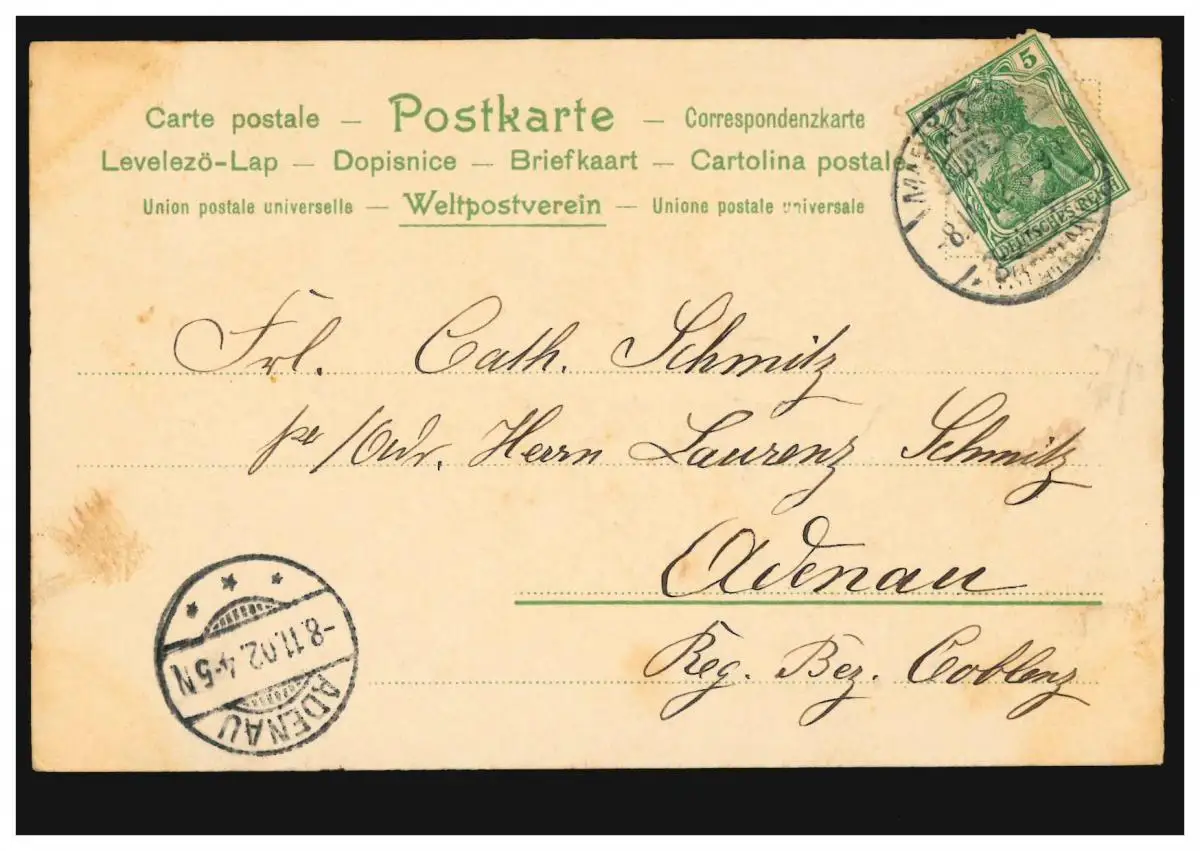 Carte postale — Postkarte — Correspondenzkarte
Levelezö-Lap — Dopisnice — Briefkaart — Cartolina postale
Union postale universelle — Weltpostverein — Unione postale universale
5
DEUTSCHES REICH
Frl. Cath. Schmitz
pr/Adr. Herrn Laurenz Schmitz
Adenau
Reg. Bez. Coblenz
-8.11.02. 4-5N
ADENAU